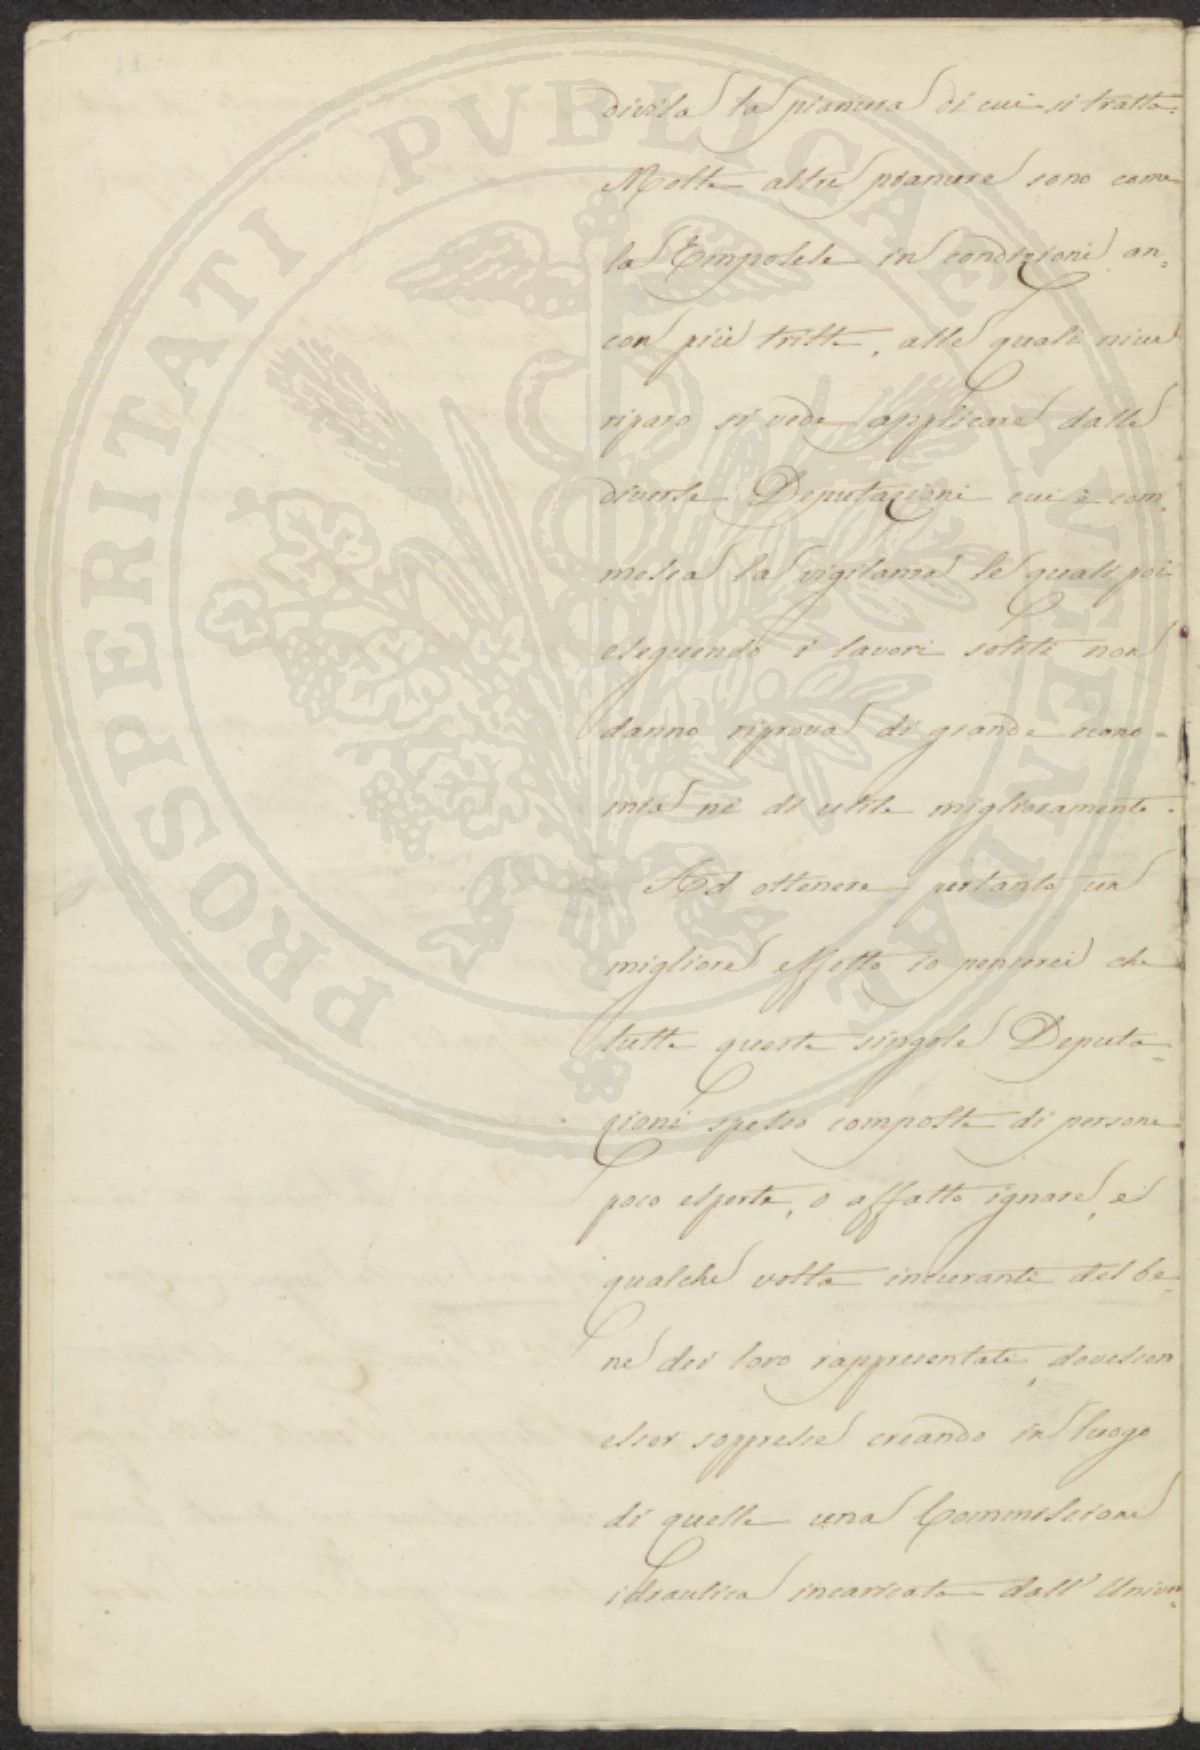 divisa la pianura di cui si tratta.
Molte altre pianure sono come
la Empolese in condizioni an-
cor più triste, alle quali niun
riparo si vede applicare dalle
diverse Deputazioni cui è com-
messa la vigilanza le quali poi
eseguendo i lavori soliti non
danno riprova di grande econo-
mia nè di utile miglioramento.
Ad ottenere pertanto un
migliore effetto io penserei che
tutte queste singole Deputa-
zioni spesso composte di persone
poco esperte, o affatto ignare, e
qualche volta incuranti del be-
ne dei loro rappresentati, dovesser
esser soppresse creando in luogo
di quelle una Commissione
idraulica incaricata dall' Univer-
PROSPERITATI PVBLICAE AVGENDAE